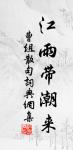 江雨带潮来
曹组散句词典网集